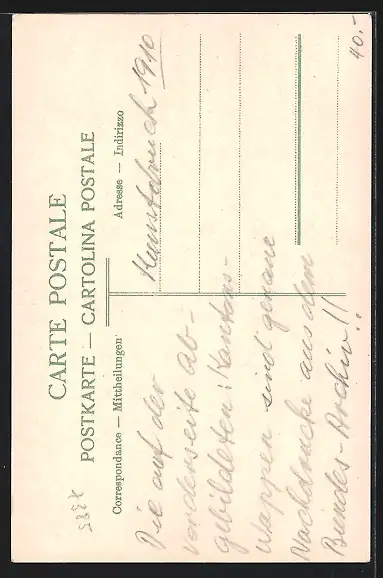 CARTE POSTALE
POSTKARTE — CARTOLINA POSTALE
Correspondance — Mittheilungen
Adresse — Indirizzo
Die auf der
Vorderseite ab-
gebildeten Kantons-
wappen sind genaue
Nachdrucke aus dem
Bundes-Archiv!!
Kunstdruck 1910
40.-